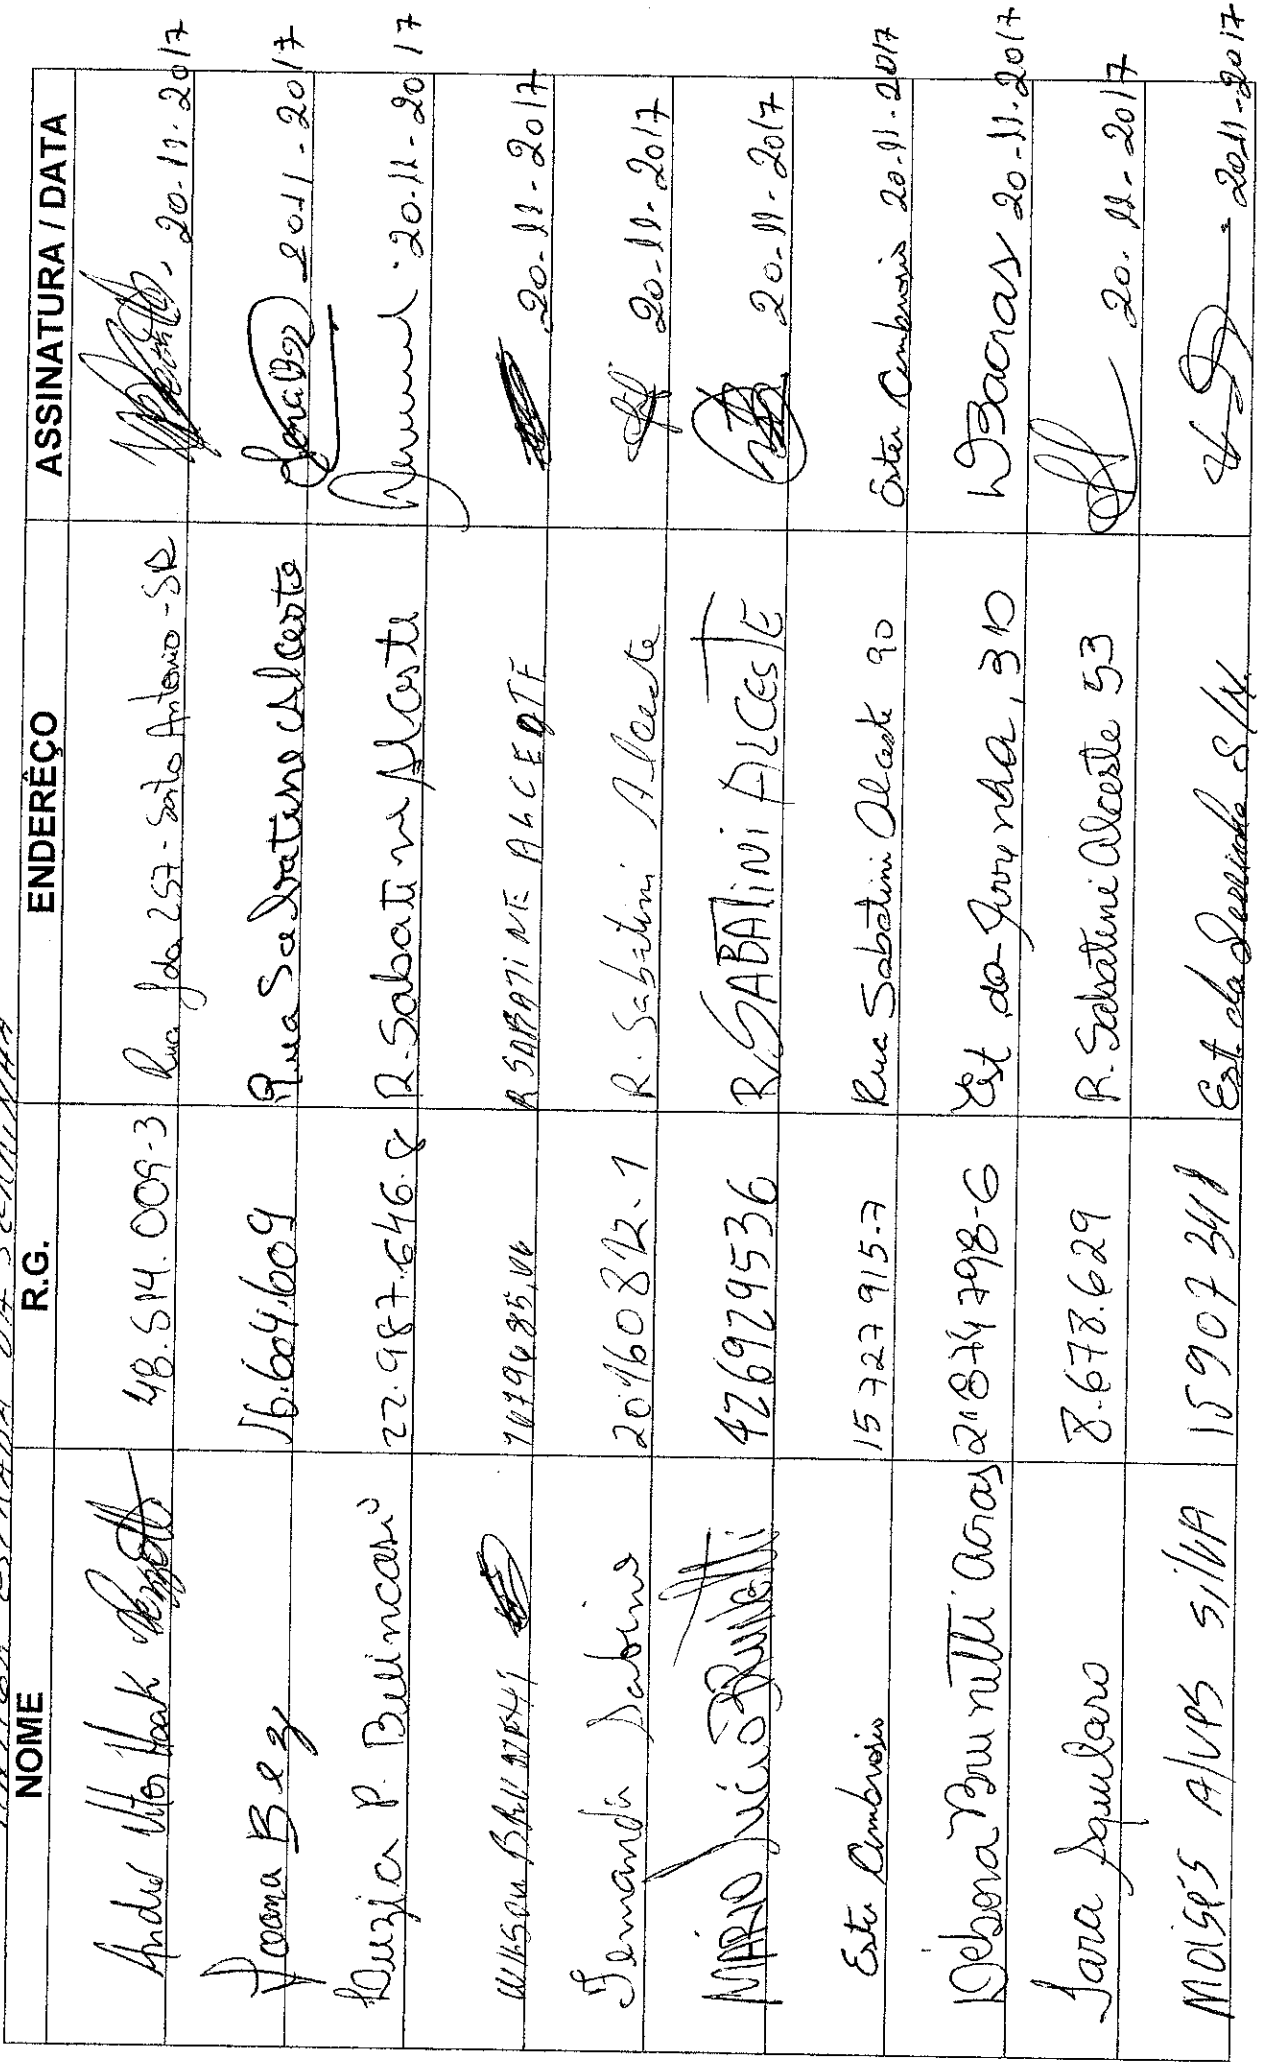 ESTRADA DA SERRINHA
NOME R.G. ENDERÊÇO ASSINATURA / DATA
Andre Vitor 48.514.009-3 Rua 257 - Santo Antonio - SR 20.11.2017
Joana Bez 16.604.609 Rua Sabatine Alceste 20.11-2017
Luzia P. Bellincasi 22.987.646.8 R. Sabatine Alceste 20.11-2017
WILSON R SABATINE ALCESTE 20-11-2017
Fernanda Sabino 20960812-1 R. Sabatini Alceste 20-11-2017
MÁRIO Lúcio BRUNETTI 426929536 R. SABATINI ALCESTE 20-11-2017
Ester Ambrosio 15 727 915-7 Rua Sabatini Alceste 90 Ester Ambrosio 20-11-2017
Debora Brunetti 21874798-6 Est da 310 20-11-2017
Sara 8.678.629 R. Sabatine Alceste 53 20.11-2017
MOISES Alves SilVA Est. da Serrinha S/N. 20.11-2017